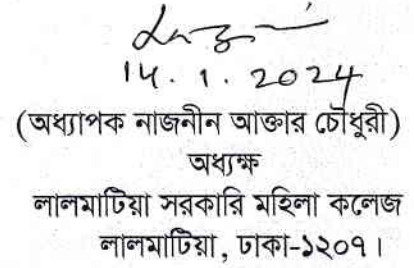 14.1.2024
(অধ্যাপক নাজনীন আক্তার চৌধুরী)
অধ্যক্ষ
লালমাটিয়া সরকারি মহিলা কলেজ
লালমাটিয়া, ঢাকা-১২০৭।